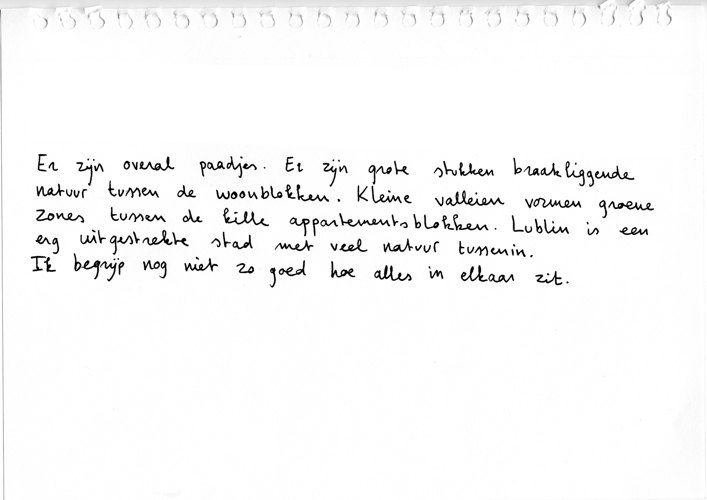 Er zijn overal paadjes. Er zijn grote stukken braakliggende
natuur tussen de woonblokken. Kleine valleien vormen groene
zones tussen de kille appartementsblokken. Lublin is een
erg uitgestrekte stad met veel natuur tussenin.
Ik begrijp nog niet zo goed hoe alles in elkaar zit.